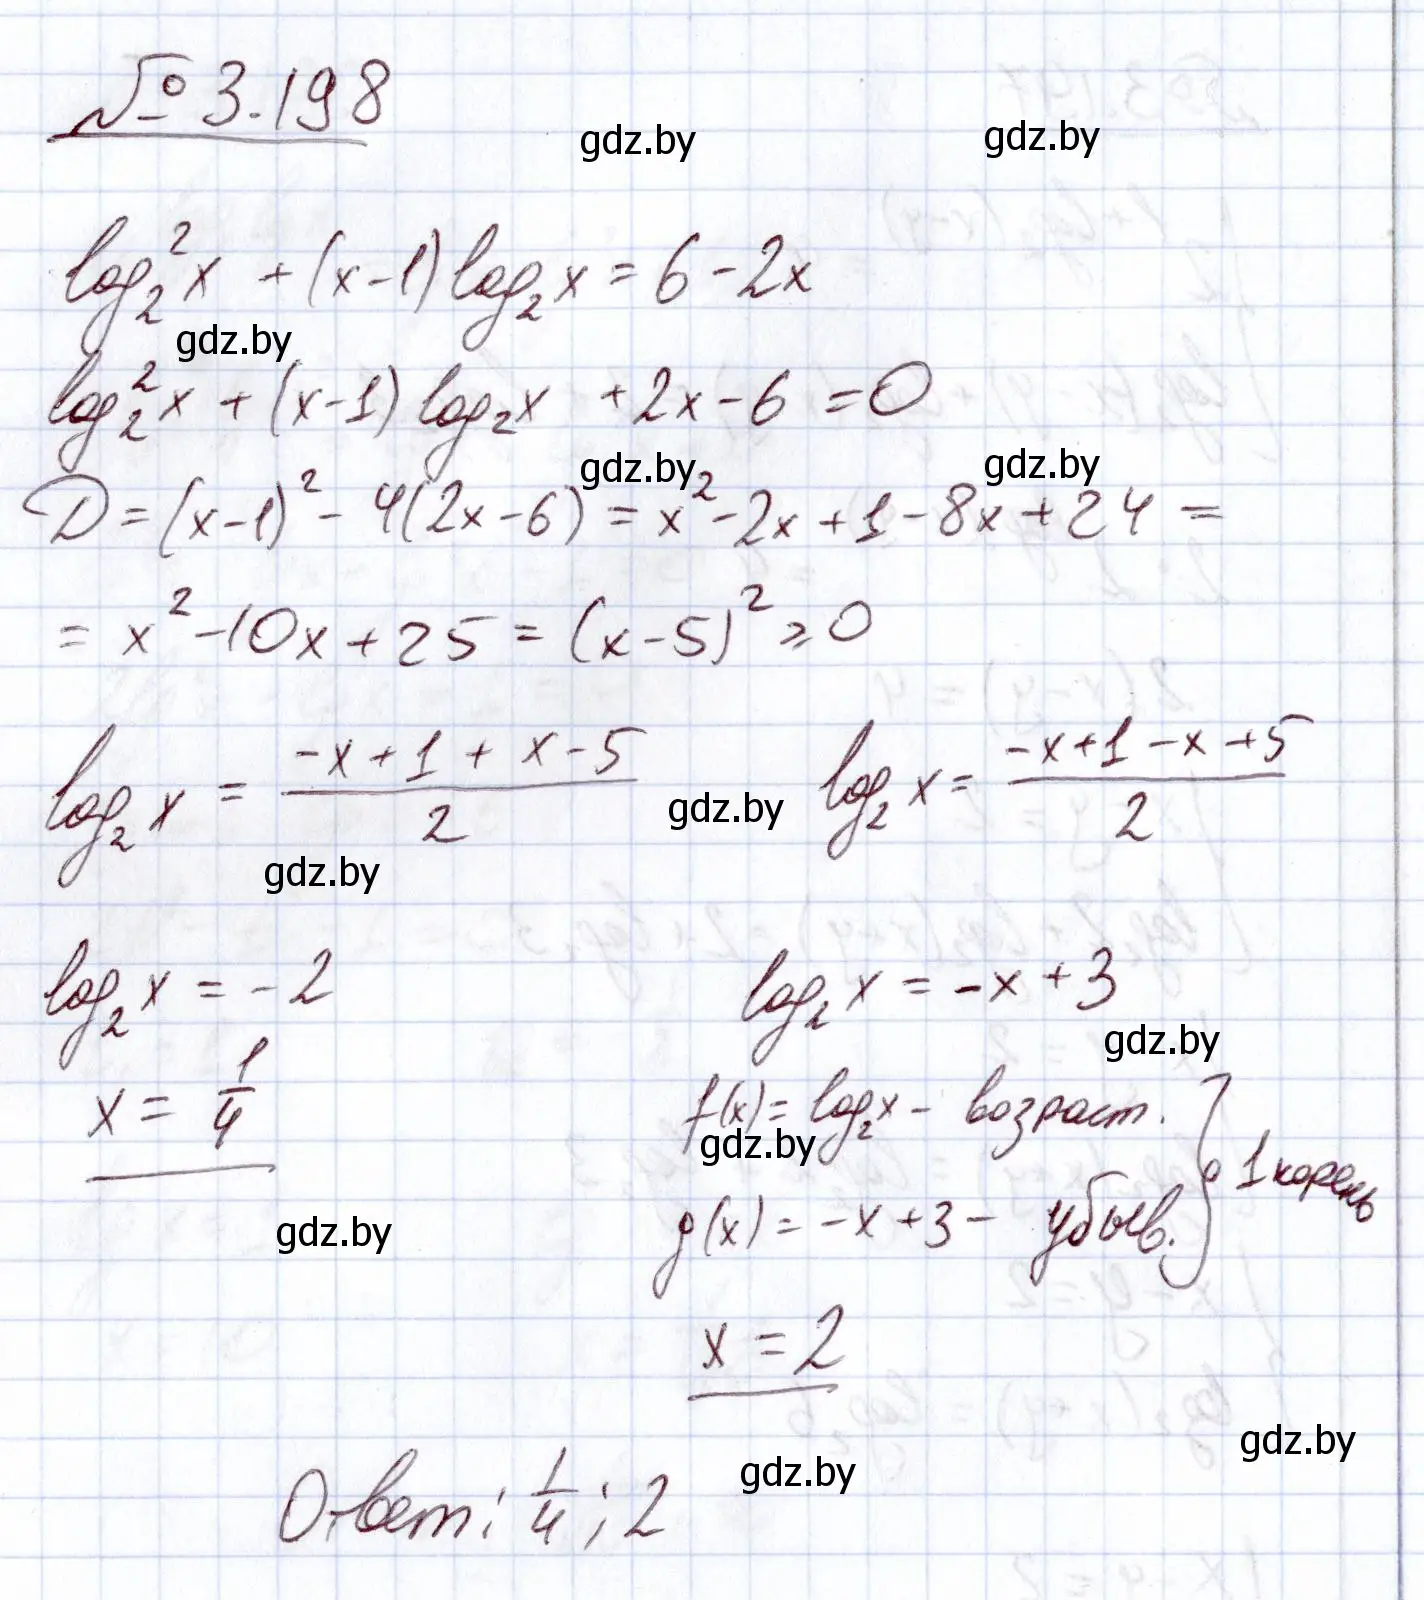 № 3.198
gdz.by gdz.by
log₂²x + (x-1) log₂x = 6 - 2x
gdz.by
log₂²x + (x-1) log₂x + 2x - 6 = 0
gdz.by gdz.by
D = (x-1)² - 4(2x-6) = x² - 2x + 1 - 8x + 24 =
= x² - 10x + 25 = (x-5)² ≥ 0
log₂x = (-x+1+x-5)/2 log₂x = (-x+1-x+5)/2
gdz.by
gdz.by
log₂x = -2 log₂x = -x+3
gdz.by
x = 1/4 f(x) = log₂x - возраст.
gdz.by
1 корень
g(x) = -x+3 - убыв.
gdz.by
x = 2
gdz.by
gdz.by
Ответ: 1/4; 2